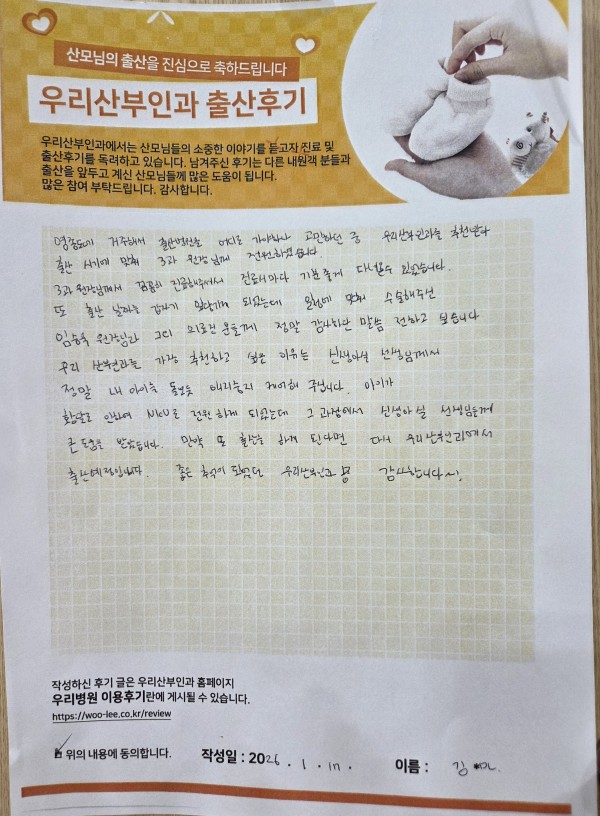 산모님의 출산을 진심으로 축하드립니다
우리산부인과 출산후기
우리산부인과에서는 산모님들의 소중한 이야기를 듣고자 진료 및
출산후기를 독려하고 있습니다. 남겨주신 후기는 다른 내원객 분들과
출산을 앞두고 계신 산모님들께 많은 도움이 됩니다.
많은 참여 부탁드립니다. 감사합니다.
영종도에 거주해서 출산병원을 어디로 가야하나 고민하던 중 우리산부인과를 추천받다
출산 시기에 맞춰 3과 원장님께 전원하였습니다.
3과 원장님께서 꼼꼼히 진료해주셔서 진료시마다 기분좋게 다닐수 있었습니다.
또 출산 날짜는 갑자기 되었는데 일정에 맞춰 수술해주신
원장님과 그리 의료진분들께 정말 감사하단 말씀 전하고 싶습니다
우리 산부인과를 가장 추천하고 싶은 이유는 신생아실 선생님께서
정말 내 아이를 돌보듯 케어해 주십니다. 아이가
황달로 인하여 NICU로 전원하게 되었는데 그 과정에서 신생아실 선생님들께
큰 도움을 받았습니다. 만약 또 출산을 하게 된다면 다시 우리산부인과에서
출산예정입니다. 좋은 추억이 되었던 우리산부인과 감사합니다~!
작성하신 후기 글은 우리산부인과 홈페이지
우리병원 이용후기란에 게시될 수 있습니다.
https://woo-lee.co.kr/review
위의 내용에 동의합니다. 작성일 : 2026 . 1 . 17. 이름 : 김